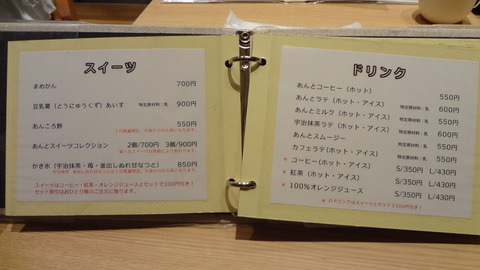 スイーツ
まめかん 700円
豆乳葛（とうにゅうくず）あいす 特定原材料：乳 900円
あんころ餅 550円
あんとスイーツコレクション 2個/700円 3個/900円
かき氷（宇治抹茶・苺・釜出しぬれ甘なつと） 850円
スイーツはコーヒー・紅茶・オレンジジュースとセットで100円引き！
セット割引はおひとり様のご注文に限ります。
ドリンク
あんとコーヒー（ホット） 550円
あんとラテ（ホット・アイス） 特定原材料：乳 600円
あんとミルク（ホット・アイス） 特定原材料：乳 550円
宇治抹茶ラテ（ホット・アイス） 特定原材料：乳 600円
あんとスムージー 特定原材料：乳 550円
カフェラテ（ホット・アイス） 特定原材料：乳 550円
＊コーヒー（ホット・アイス） S/350円 L/430円
＊紅茶（ホット・アイス） S/350円 L/430円
＊100％オレンジジュース S/350円 L/430円